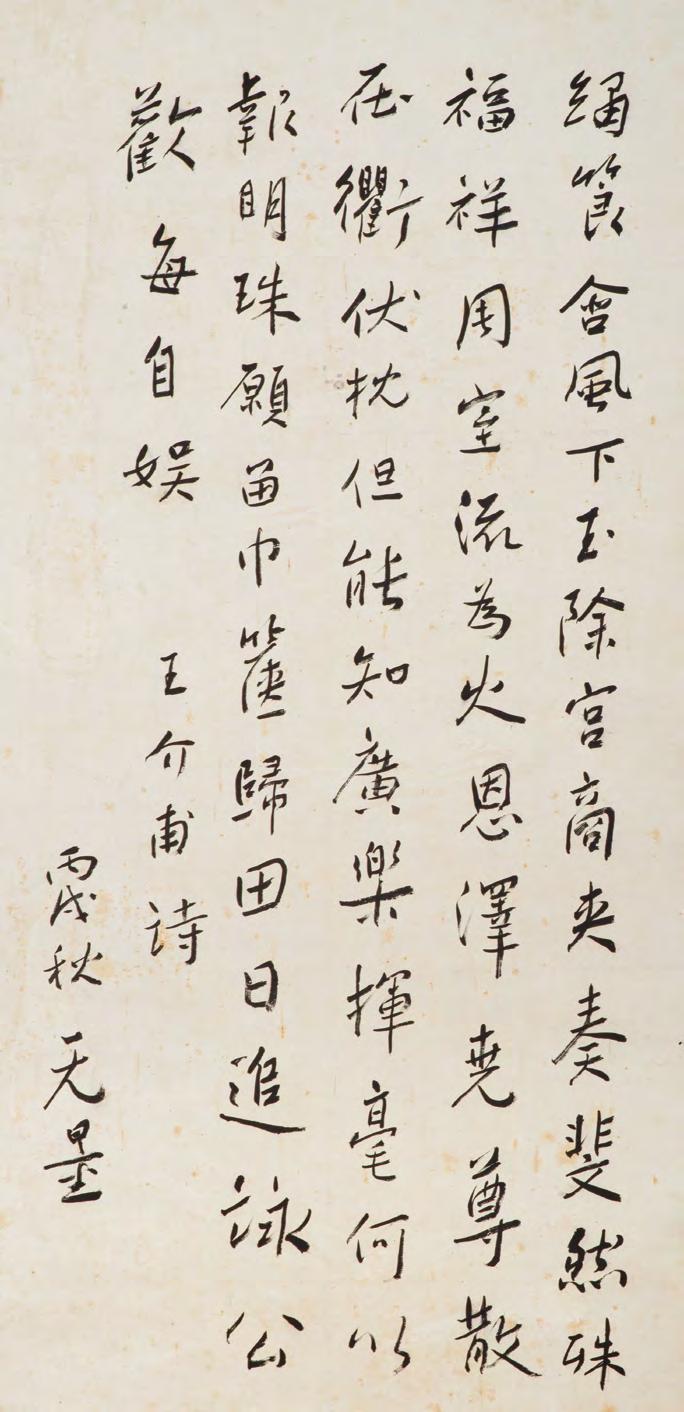 含風下玉除宮商夾奏斐然殊
福祥周室流為火恩澤堯尊散
在衢伏枕但能知廣樂揮毫何以
報明珠願留巾篋歸田日追詠公
歡每自娛
王介甫詩
丙戌秋 无量